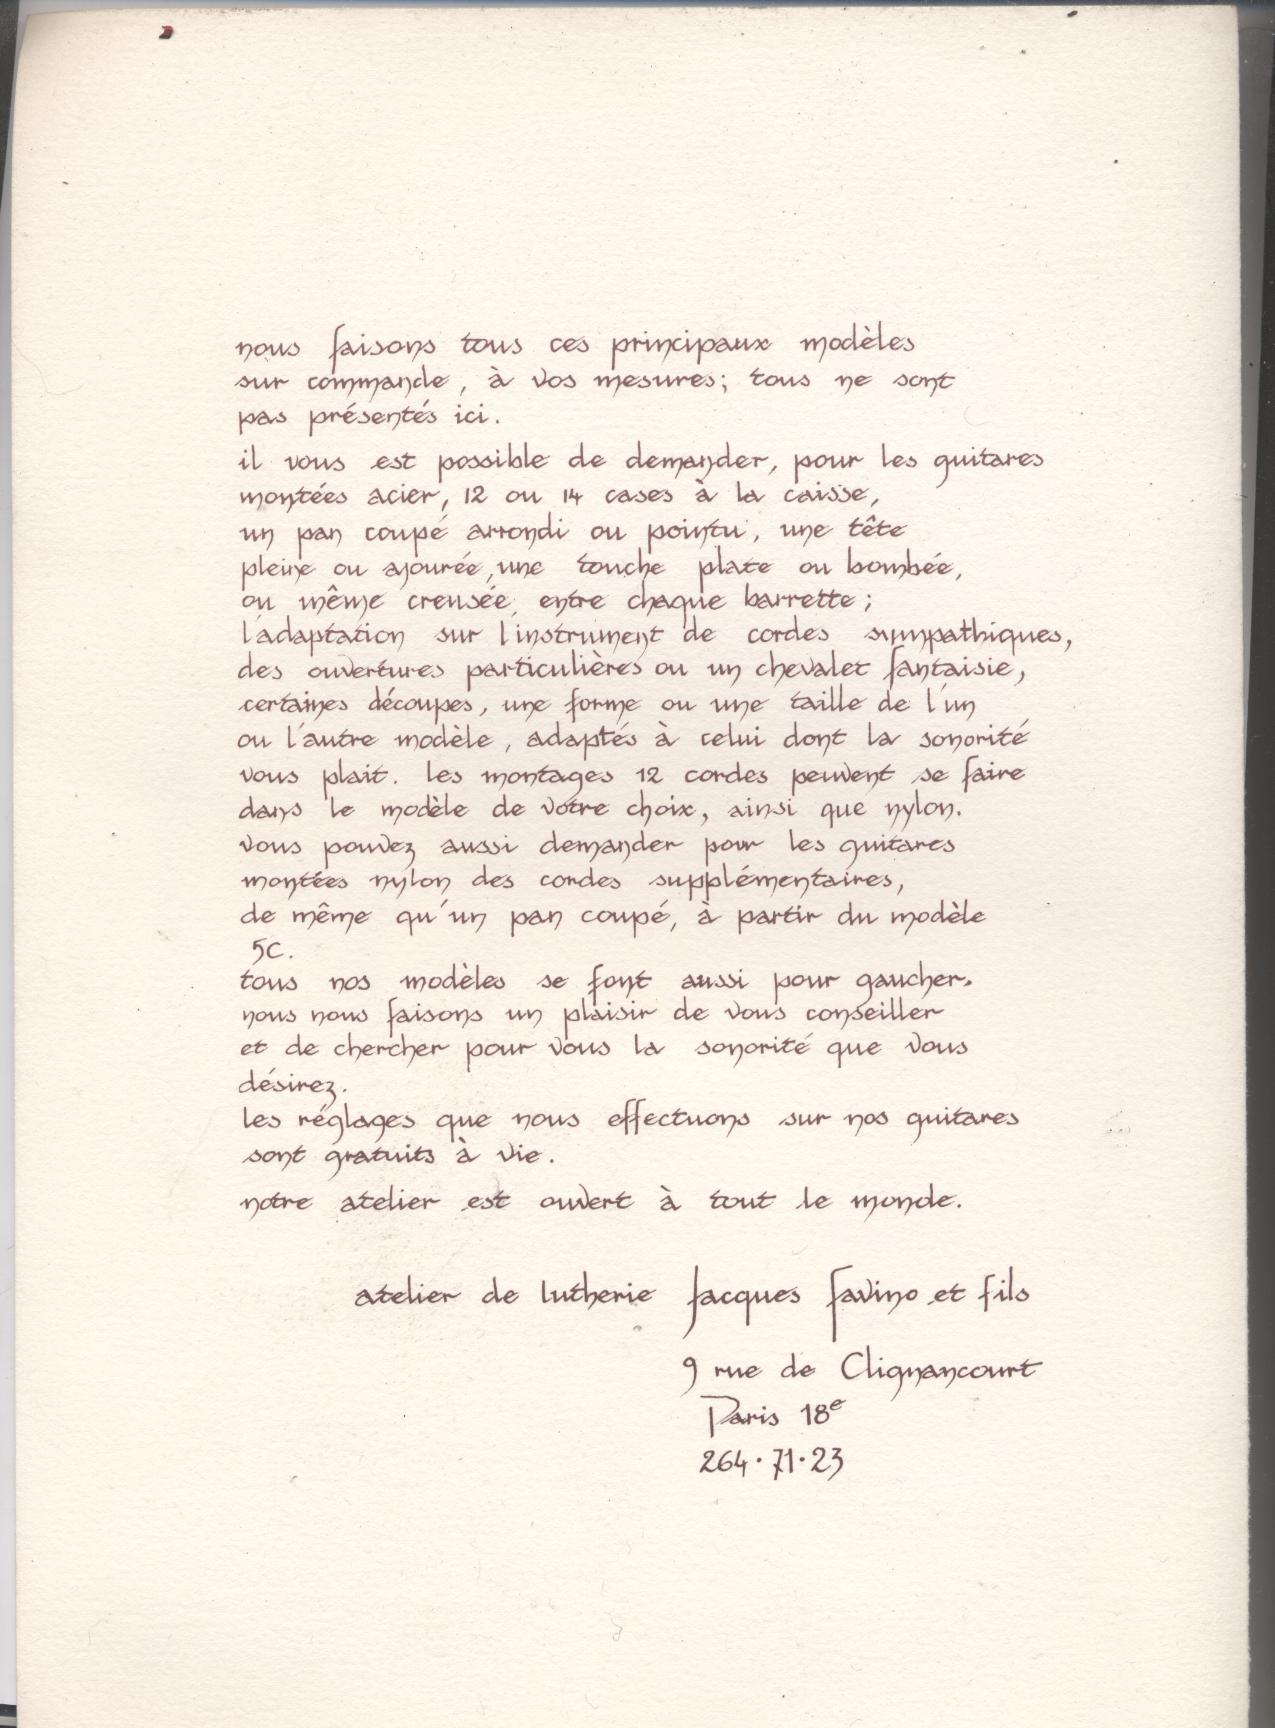 nous faisons tous ces principaux modèles
sur commande, à vos mesures; tous ne sont
pas présentés ici.
il vous est possible de demander, pour les guitares
montées acier, 12 ou 14 cases à la caisse,
un pan coupé arrondi ou pointu, une tête
pleine ou ajourée, une touche plate ou bombée,
ou même creusée entre chaque barrette;
l'adaptation sur l'instrument de cordes sympathiques,
des ouvertures particulières ou un chevalet fantaisie,
certaines découpes, une forme ou une taille de l'un
ou l'autre modèle, adaptés à celui dont la sonorité
vous plait. les montages 12 cordes peuvent se faire
dans le modèle de votre choix, ainsi que nylon.
vous pouvez aussi demander pour les guitares
montées nylon des cordes supplémentaires,
de même qu'un pan coupé, à partir du modèle
5C.
tous nos modèles se font aussi pour gaucher.
nous nous faisons un plaisir de vous conseiller
et de chercher pour vous la sonorité que vous
désirez.
les réglages que nous effectuons sur nos guitares
sont gratuits à vie.
notre atelier est ouvert à tout le monde.
atelier de lutherie Jacques Favino et fils
9 rue de Clignancourt
Paris 18e
264·71·23